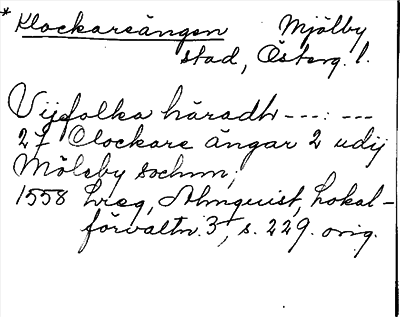 * Klockarsängen Mjölby
stad, Österg. l.
Vijfolka häradh ---:---
27 Clockare ängar 2 udij
Mölsby sochnn;
1558 Lreg, Almquist, Lokal-
förvaltn. 3, s. 229. orig.